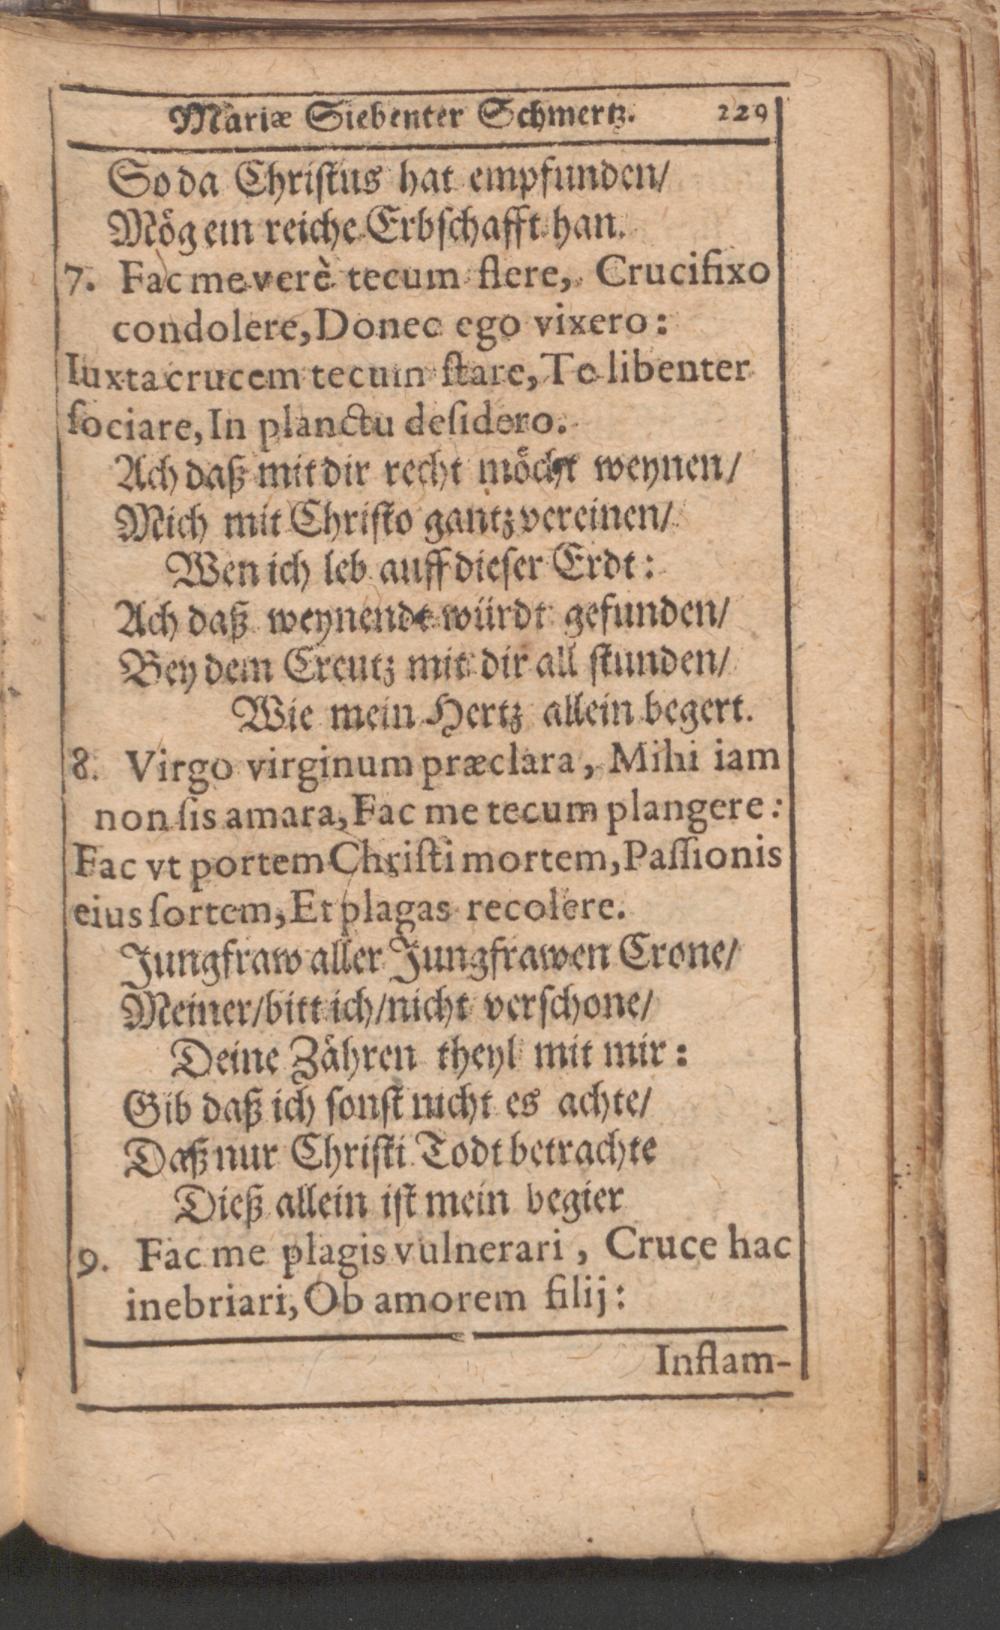 Mariæ Siebenter Schmertz. 229
So da Christus hat empfunden/
Mög ein reiche Erbschafft han.
7. Fac me verè tecum flere, Crucifixo
condolere, Donec ego vixero:
Iuxta crucem tecum stare, Te libenter
sociare, In planctu desidero.
Ach daß mit dir recht möcht weynen/
Mich mit Christo gantz vereinen/
Wen ich leb auff dieser Erdt:
Ach daß weynendt würdt gefunden/
Bey dem Creutz mit dir all stunden/
Wie mein Hertz allein begert.
8. Virgo virginum præclara, Mihi iam
non sis amara, Fac me tecum plangere:
Fac vt portem Christi mortem, Passionis
eius sortem, Et plagas recolere.
Jungfraw aller Jungfrawen Crone/
Meiner/bitt ich/nicht verschone/
Deine Zähren theyl mit mir:
Gib daß ich sonst nicht es achte/
Daß nur Christi Todt betrachte
Dieß allein ist mein begier
9. Fac me plagis vulnerari, Cruce hac
inebriari, Ob amorem filij:
Inflam-